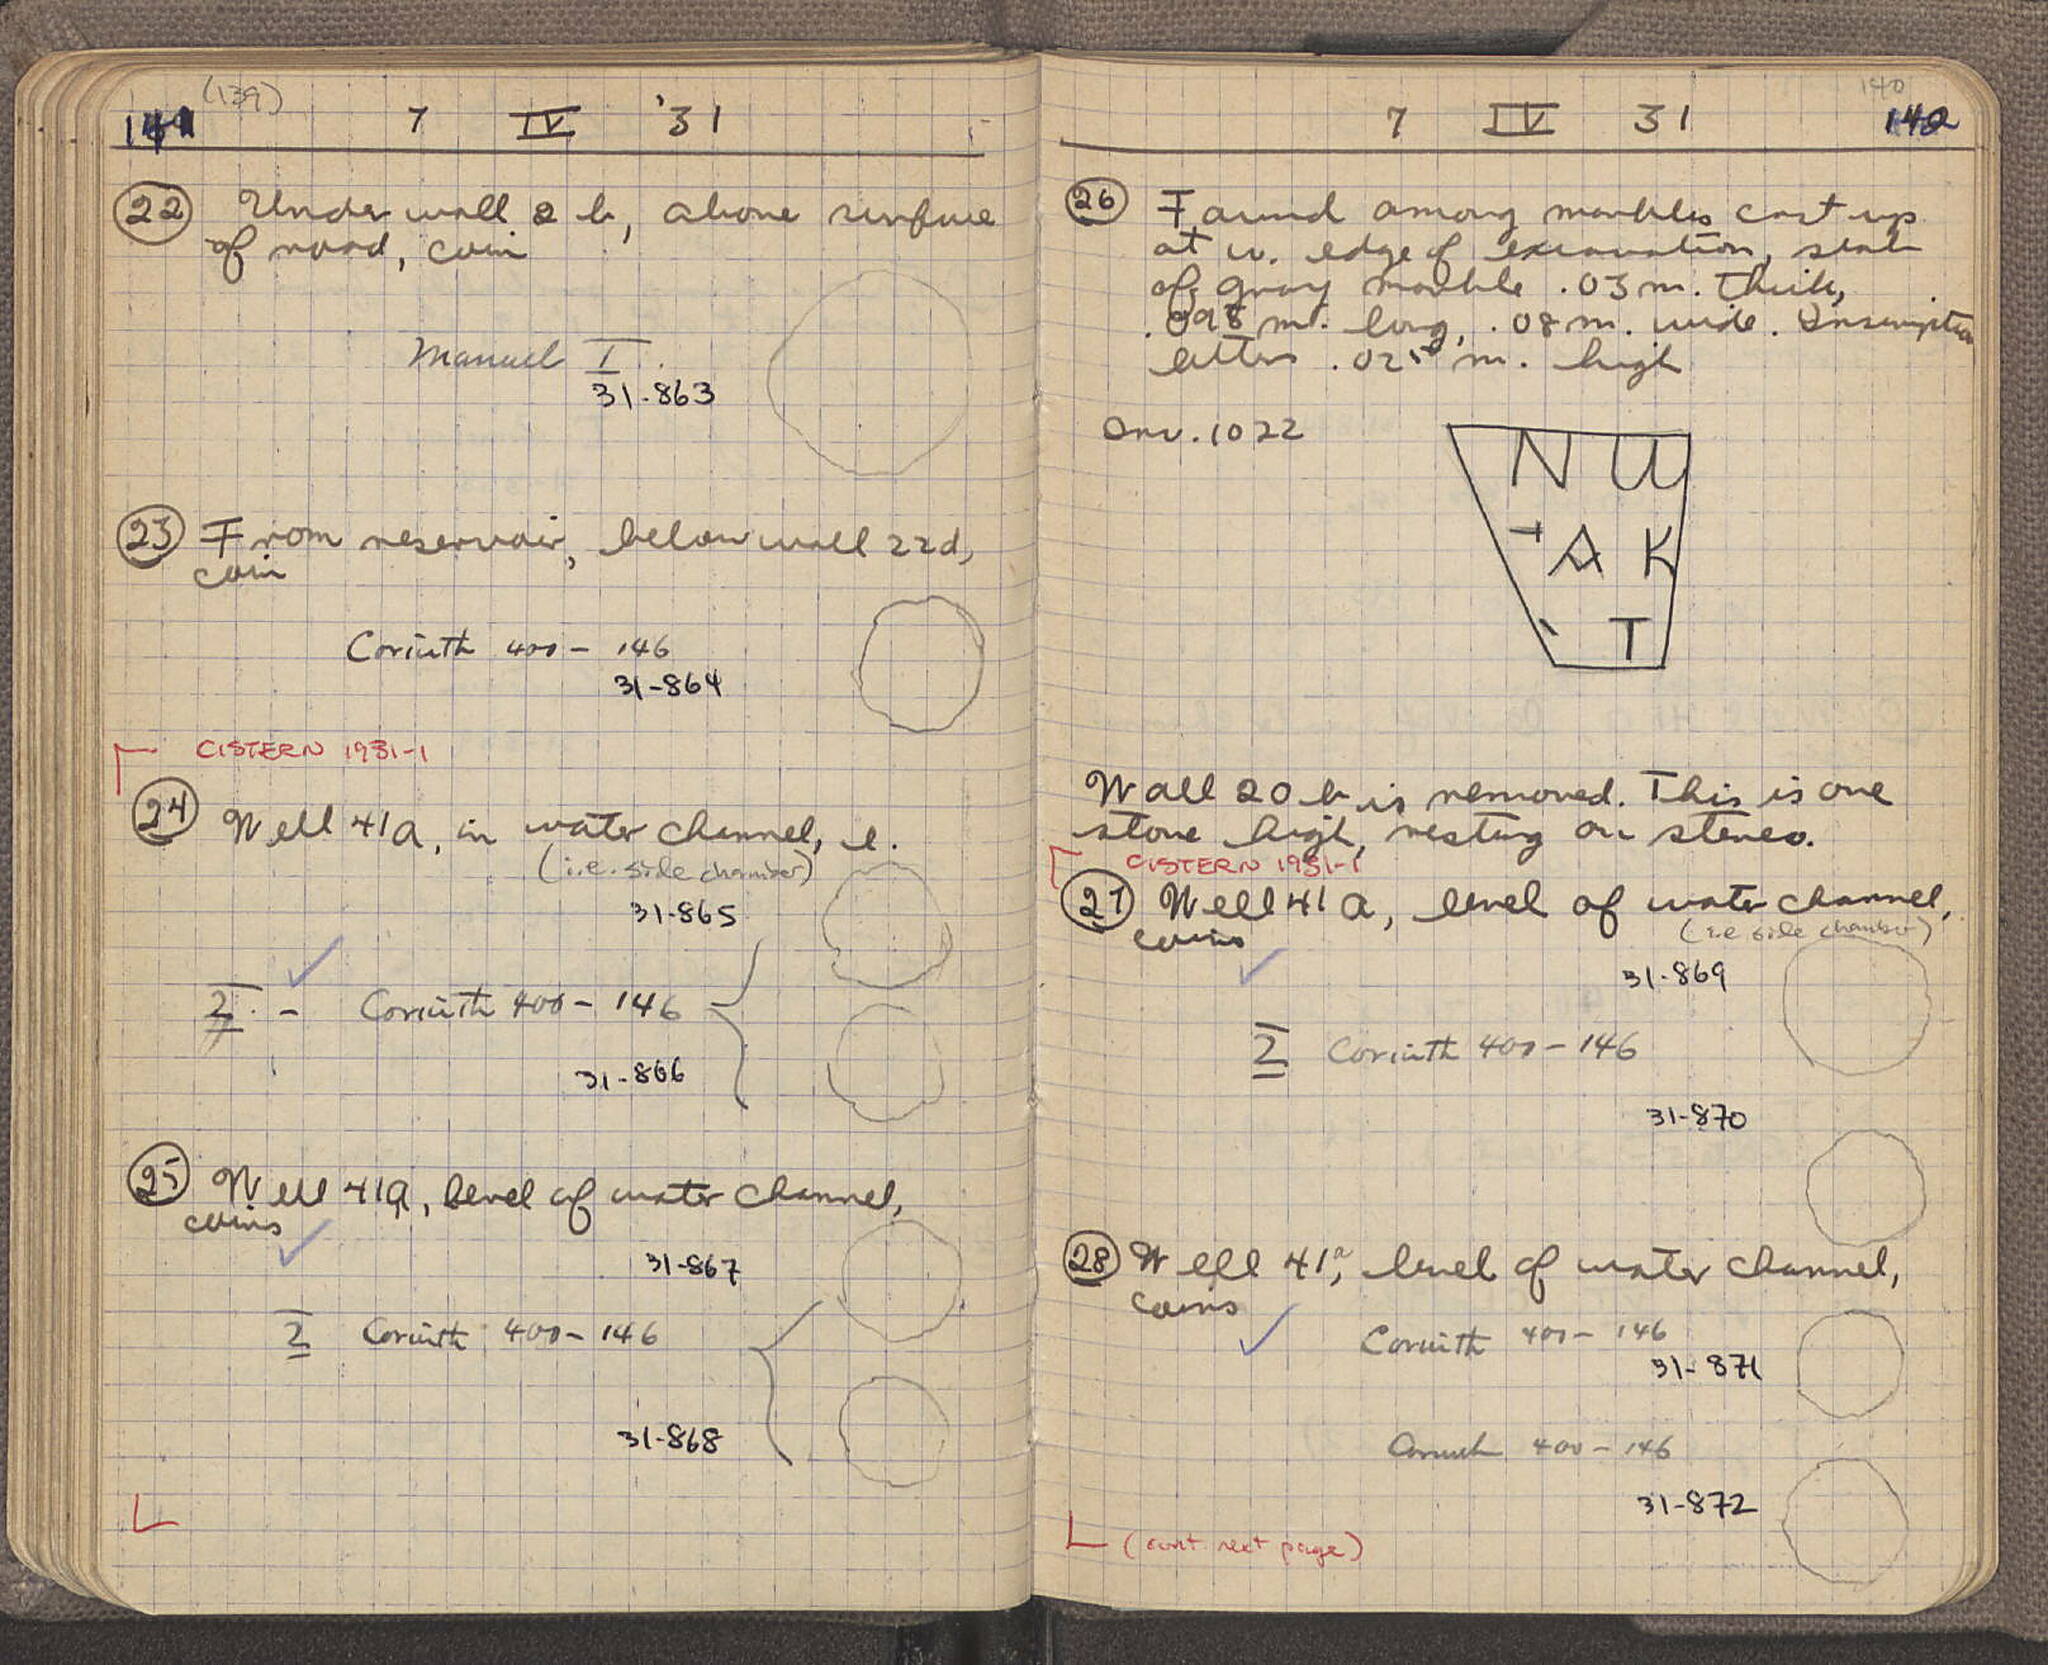 (139)
7 IV '31
22 Under wall 2 b, above surface
of road, coin
Manuel I
31-863
23 From reservoir, below wall 22d,
coin
Corinth 400 - 146
31-864
CISTERN 1931-1
24 Well 41a, in water channel, e.
(i.e. side chamber)
31-865
2 - Corinth 400 - 146
31-866
25 Well 41a, level of water channel,
coins
31-867
2 Corinth 400 - 146
31-868
140
7 IV 31 140
26 Found among marbles cast up
at w. edge of excavation, slab
of gray marble .03 m. thick,
.098 m. long, .08 m. wide. Inscription
letters m. high
Inv. 1022
N Ш
A K
T
Wall 20 b is removed. This is one
stone high, resting on stereo.
CISTERN 1931-1
27 Well 41 a, level of water channel,
(i.e side chamber)
coins
31-869
2 Corinth 400 - 146
31-870
28 Well 41a, level of water channel,
coins
Corinth 400 - 146
31-871
Corinth 400 - 146
31-872
(cont next page)